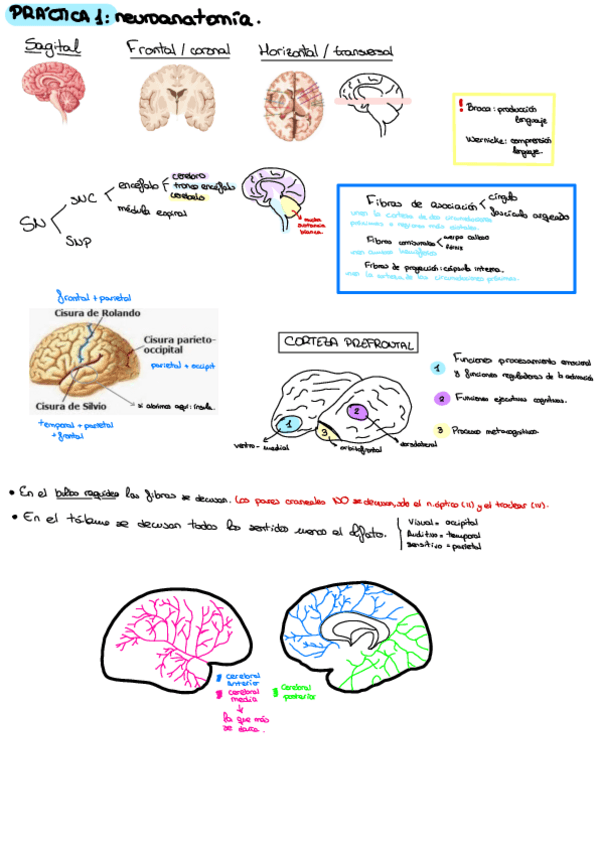 PRÁCTICA 1: neuroanatomía.
Sagital
Frontal / coronal
Horizontal / transversal
! Broca: producción
lenguaje
Wernicke: comprensión
lenguaje.
SN
SNC
SNP
encéfalo
médula espinal
cerebro
tronco encéfalo
cerebelo
mucha
sustancia
blanca.
Fibras de asociación
cíngulo
fascículo arqueado
unen la corteza de dos circunvoluciones
próximas o regiones más distales.
Fibras comisurales
cuerpo calloso
fórnix
unen ambos hemisferios
Fibras de proyección: cápsula interna.
frontal + parietal
Cisura de Rolando
Cisura parieto-
occipital
parietal + occipit
Cisura de Silvio
si abrimos aquí: ínsula.
temporal + parietal
+ frontal
CORTEZA PREFRONTAL
1
2
3
ventro-medial
orbitofrontal
dorsolateral
1 Funciones procesamiento emocional
y funciones reguladoras de la
2 Funciones ejecutivas cognitivas.
3 Procesos metacognitivos.
• En el bulbo raquídeo las fibras se decusan. Los pares craneales NO se decusan, solo el n. óptico (II) y el troclear (IV).
• En el tálamo se decusan todos los sentidos menos el olfato.
Visual = occipital
Auditivo = temporal
Sensitivo = parietal
cerebral
anterior
cerebral
media
la que más
se daña.
cerebral
posterior